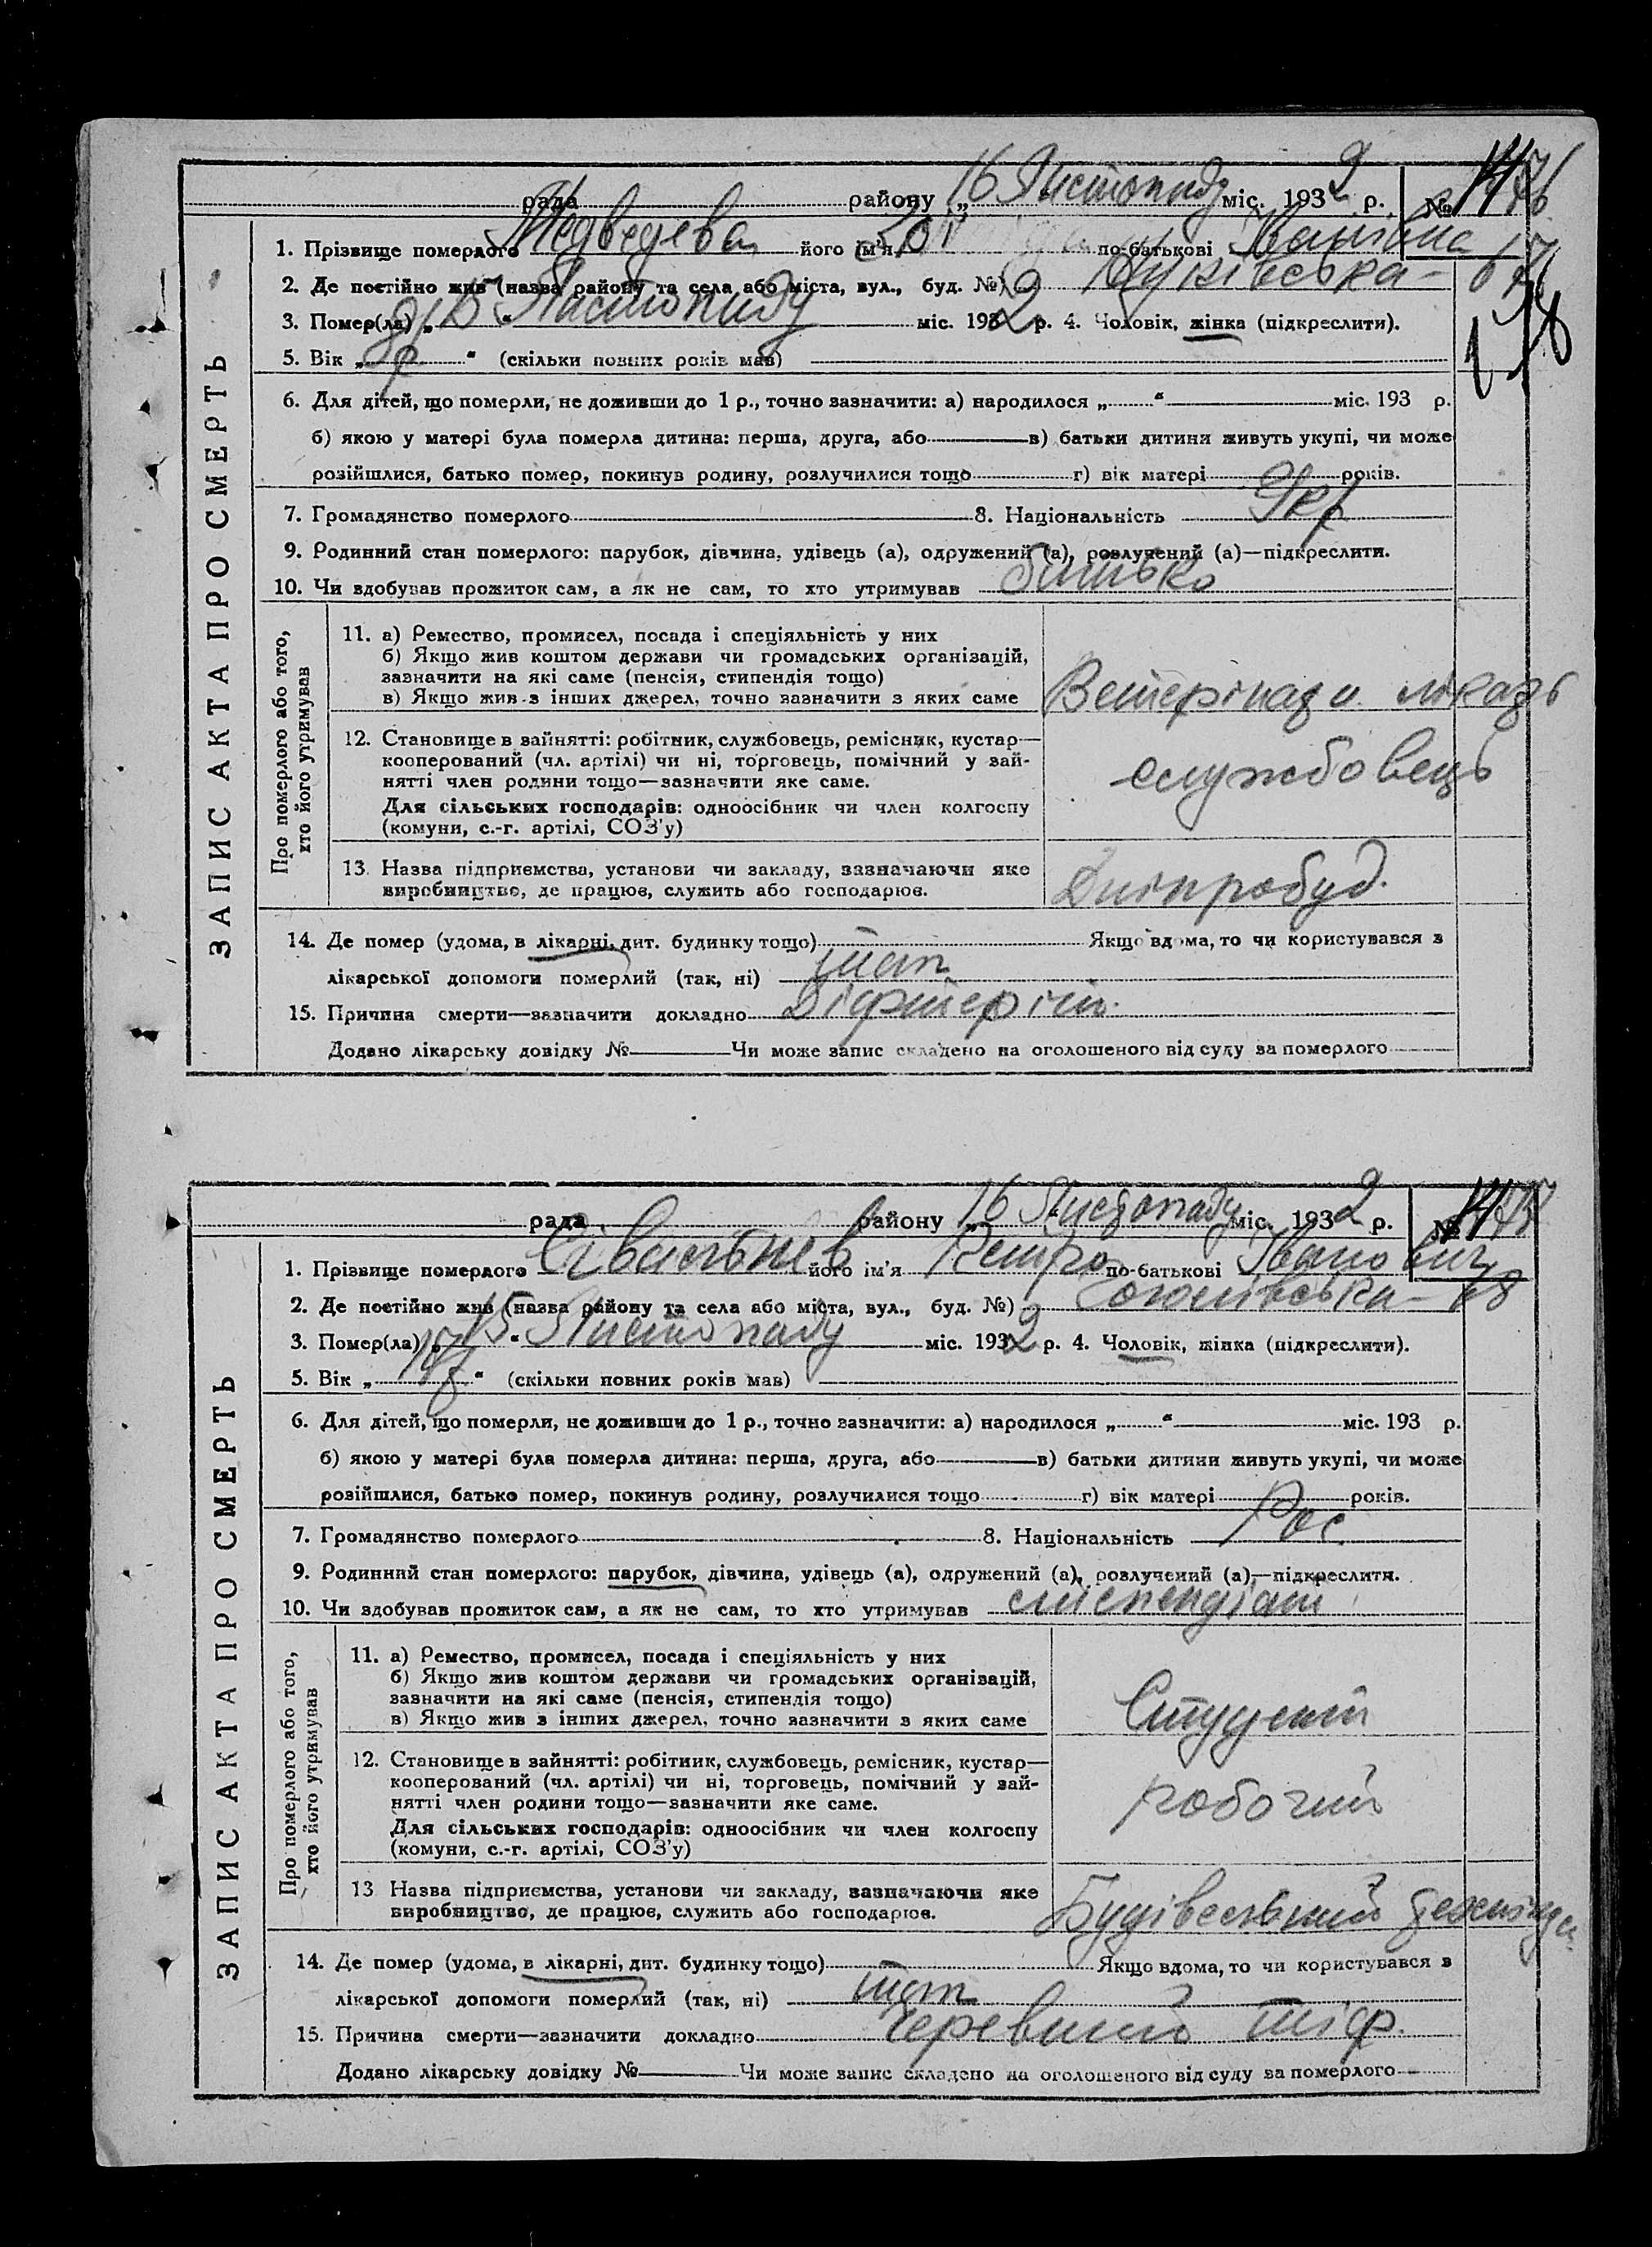 рада району „16 Листопаду міс. 1932 р. №
1. Прізвище померлого Медведева його ім'я по-батькові Іванівна
2. Де постійно жив (назва району та села або міста, вул., буд. №)
3. Помер(ла) „15 Листопаду міс. 1932 р. 4. Чоловік, жінка (підкреслити).
5. Вік „ “ (скільки повних років мав)
6. Для дітей, що померли, не доживши до 1 р., точно зазначити: а) народилося „ “ міс. 193 р.
б) якою у матері була померла дитина: перша, друга, або в) батьки дитини живуть укупі, чи може
розійшлися, батько помер, покинув родину, розлучилися тощо г) вік матері років.
7. Громадянство померлого 8. Національність Укр
9. Родинний стан померлого: парубок, дівчина, удівець (а), одружений (а), розлучений (а)—підкреслити.
10. Чи здобував прожиток сам, а як не сам, то хто утримував батько
ЗАПИС АКТА ПРО СМЕРТЬ
Про померлого або того,
хто його утримував
11. а) Ремество, промисел, посада і спеціяльність у них
б) Якщо жив коштом держави чи громадських організацій,
зазначити на які саме (пенсія, стипендія тощо)
в) Якщо жив з інших джерел, точно зазначити з яких саме
лікарь
12. Становище в зайнятті: робітник, службовець, ремісник, кустар—
кооперований (чл. артілі) чи ні, торговець, помічний у зай-
нятті член родини тощо—зазначити яке саме.
Для сільських господарів: одноосібник чи член колгоспу
(комуни, с.-г. артілі, СОЗ'у)
службовець
13. Назва підприємства, установи чи закладу, зазначаючи яке
виробництво, де працює, служить або господарює.
Дніпробуд.
14. Де помер (удома, в лікарні, дит. будинку тощо) Якщо вдома, то чи користувався з
лікарської допомоги померлий (так, ні) так
15. Причина смерти—зазначити докладно Діфтеріт.
Додано лікарську довідку № Чи може запис складено на оголошеного від суду за померлого
рада району „16 Листопаду міс. 1932 р. №
1. Прізвище померлого його ім'я Петро по-батькові Іванович
2. Де постійно жив (назва району та села або міста, вул., буд. №)
3. Помер(ла) „15 “ Листопаду міс. 1932 р. 4. Чоловік, жінка (підкреслити).
5. Вік „ “ (скільки повних років мав)
6. Для дітей, що померли, не доживши до 1 р., точно зазначити: а) народилося „ “ міс. 193 р.
б) якою у матері була померла дитина: перша, друга, або в) батьки дитини живуть укупі, чи може
розійшлися, батько помер, покинув родину, розлучилися тощо г) вік матері років.
7. Громадянство померлого 8. Національність Рос
9. Родинний стан померлого: парубок, дівчина, удівець (а), одружений (а), розлучений (а)—підкреслити.
10. Чи здобував прожиток сам, а як не сам, то хто утримував стіпендіат
ЗАПИС АКТА ПРО СМЕРТЬ
Про померлого або того,
хто його утримував
11. а) Ремество, промисел, посада і спеціяльність у них
б) Якщо жив коштом держави чи громадських організацій,
зазначити на які саме (пенсія, стипендія тощо)
в) Якщо жив з інших джерел, точно зазначити з яких саме
Студент
12. Становище в зайнятті: робітник, службовець, ремісник, кустар—
кооперований (чл. артілі) чи ні, торговець, помічний у зай-
нятті член родини тощо—зазначити яке саме.
Для сільських господарів: одноосібник чи член колгоспу
(комуни, с.-г. артілі, СОЗ'у)
робочий
13. Назва підприємства, установи чи закладу, зазначаючи яке
виробництво, де працює, служить або господарює.
Будівельний
14. Де помер (удома, в лікарні, дит. будинку тощо) Якщо вдома, то чи користувався з
лікарської допомоги померлий (так, ні) так
15. Причина смерти—зазначити докладно Черевний тіф.
Додано лікарську довідку № Чи може запис складено на оголошеного від суду за померлого